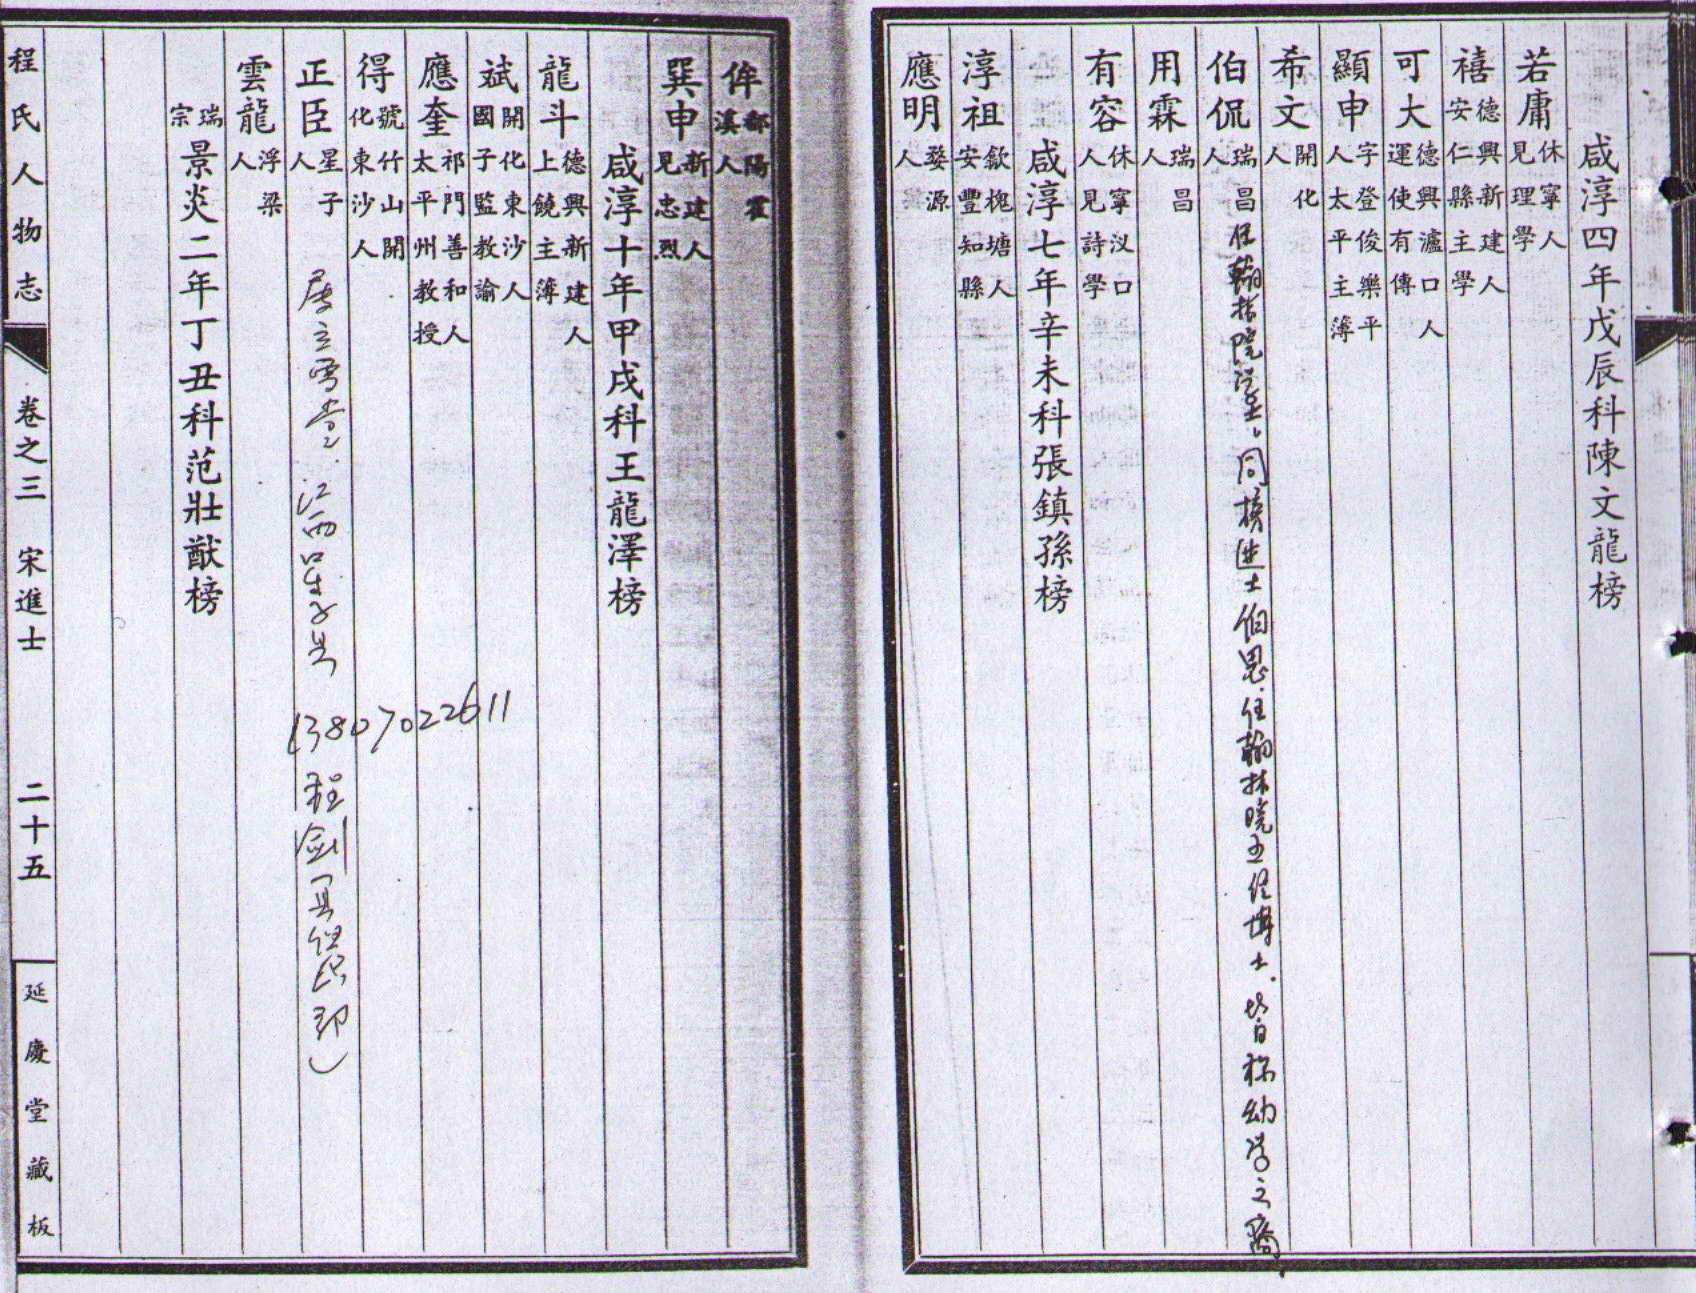 咸淳四年戊辰科陳文龍榜
若庸休寧人見理學
禧德興新建人安仁縣主學
可大德興瀘口人運使有傳
顯申字登俊樂平人太平主簿
希文開化人
伯侃瑞昌人 任翰林院學士，同榜進士伯思任翰林院五经博士．皆称幼学之裔
用霖瑞昌人
有容休寧汊口人見詩學
咸淳七年辛未科張鎮孫榜
淳祖歙槐塘人安豐知縣
應明婺源人
侔鄱陽霍溪人
巽申新建人見忠烈
咸淳十年甲戌科王龍澤榜
龍斗德興新建人上饒主簿
斌開化東沙人國子監教諭
應奎祁門善和人太平州教授
得號竹山開化東沙人
正臣星子人 江西星子县
13807022611
程剑
雲龍浮梁人
瑞宗景炎二年丁丑科范壯猷榜
程氏人物志 卷之三 宋進士 二十五 延慶堂藏板